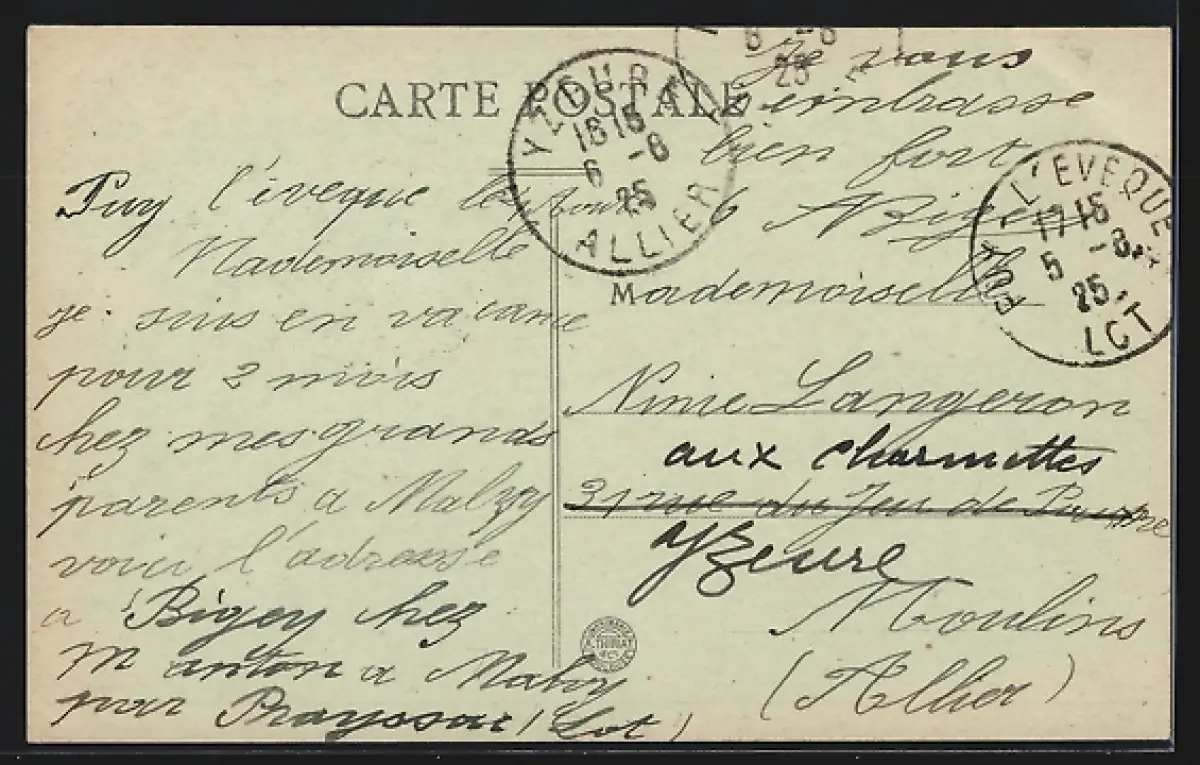 CARTE POSTALE
Je vous
embrasse
bien fort
Puy l'éveque le 5 Aout
Mademoiselle
je suis en vacance
pour 2 mois
chez mes grands
parents a Malzy
voici l'adresse
a Bigey chez
m anton a
pour Prayssac (Lot)
Mademoiselle
Ninie Langeron
aux charmettes
31 rue du Jeu de Paume
Yzeure
Moulins
(Allier)
YZEURE
16 15
6 -8
25
ALLIER
PUY L'EVEQUE
17 15
5 -8
25
LOT
6 -8
25